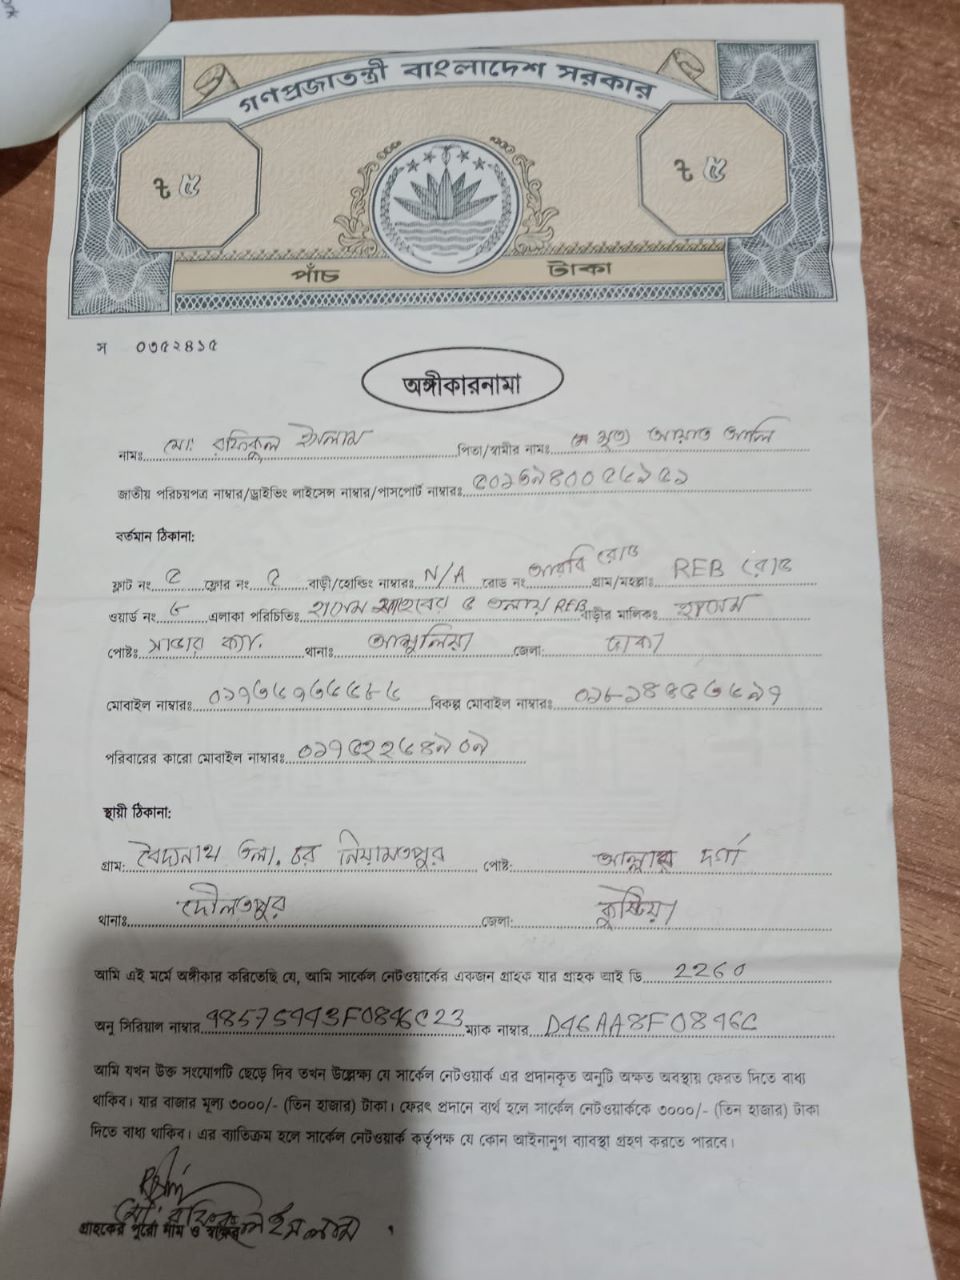 গণপ্রজাতন্ত্রী বাংলাদেশ সরকার
৳ ৫ ৳ ৫
পাঁচ টাকা
স ০৩৫২৪১৫
অঙ্গীকারনামা
নামঃ মো: রফিকুল ইসলাম পিতা/স্বামীর নামঃ (মৃত) আয়াত আলি
জাতীয় পরিচয়পত্র নাম্বার/ড্রাইভিং লাইসেন্স নাম্বার/পাসপোর্ট নাম্বারঃ
বর্তমান ঠিকানা:
ফ্লাট নং ৫ ফ্লোর নং ৫ বাড়ী/হোল্ডিং নাম্বারঃ N/A রোড নং আরবি রোড গ্রাম/মহল্লাঃ REB রোড
ওয়ার্ড নং ৬ এলাকা পরিচিতিঃ সাহবের ৫ তলায় REB বাড়ীর মালিকঃ
পোষ্টঃ সাভার ক্যা. থানাঃ আশুলিয়া জেলা: ঢাকা
মোবাইল নাম্বারঃ বিকল্প মোবাইল নাম্বারঃ
পরিবারের কারো মোবাইল নাম্বারঃ ০১৭৫২২৬৪৯০৯
স্থায়ী ঠিকানা:
গ্রাম: বৈদ্যনাথ তলা, চর নিয়ামতপুর পোষ্ট: আল্লার দর্গা
থানাঃ দৌলতপুর জেলা: কুষ্টিয়া
আমি এই মর্মে অঙ্গীকার করিতেছি যে, আমি সার্কেল নেটওয়ার্কের একজন গ্রাহক যার গ্রাহক আই ডি 2260
অনু সিরিয়াল নাম্বার 48575443F0846C23 ম্যাক নাম্বার D46AA8F0846C
আমি যখন উক্ত সংযোগটি ছেড়ে দিব তখন উল্লেক্ষ্য যে সার্কেল নেটওয়ার্ক এর প্রদানকৃত অনুটি অক্ষত অবস্থায় ফেরত দিতে বাধ্য
থাকিব। যার বাজার মূল্য ৩০০০/- (তিন হাজার) টাকা। ফেরৎ প্রদানে ব্যর্থ হলে সার্কেল নেটওয়ার্ককে ৩০০০/- (তিন হাজার) টাকা
দিতে বাধ্য থাকিব। এর ব্যাতিক্রম হলে সার্কেল নেটওয়ার্ক কর্তৃপক্ষ যে কোন আইনানুগ ব্যাবস্থা গ্রহণ করতে পারবে।
মো: রফিকুল ইসলাম
গ্রাহকের পুরো নাম ও স্বাক্ষর